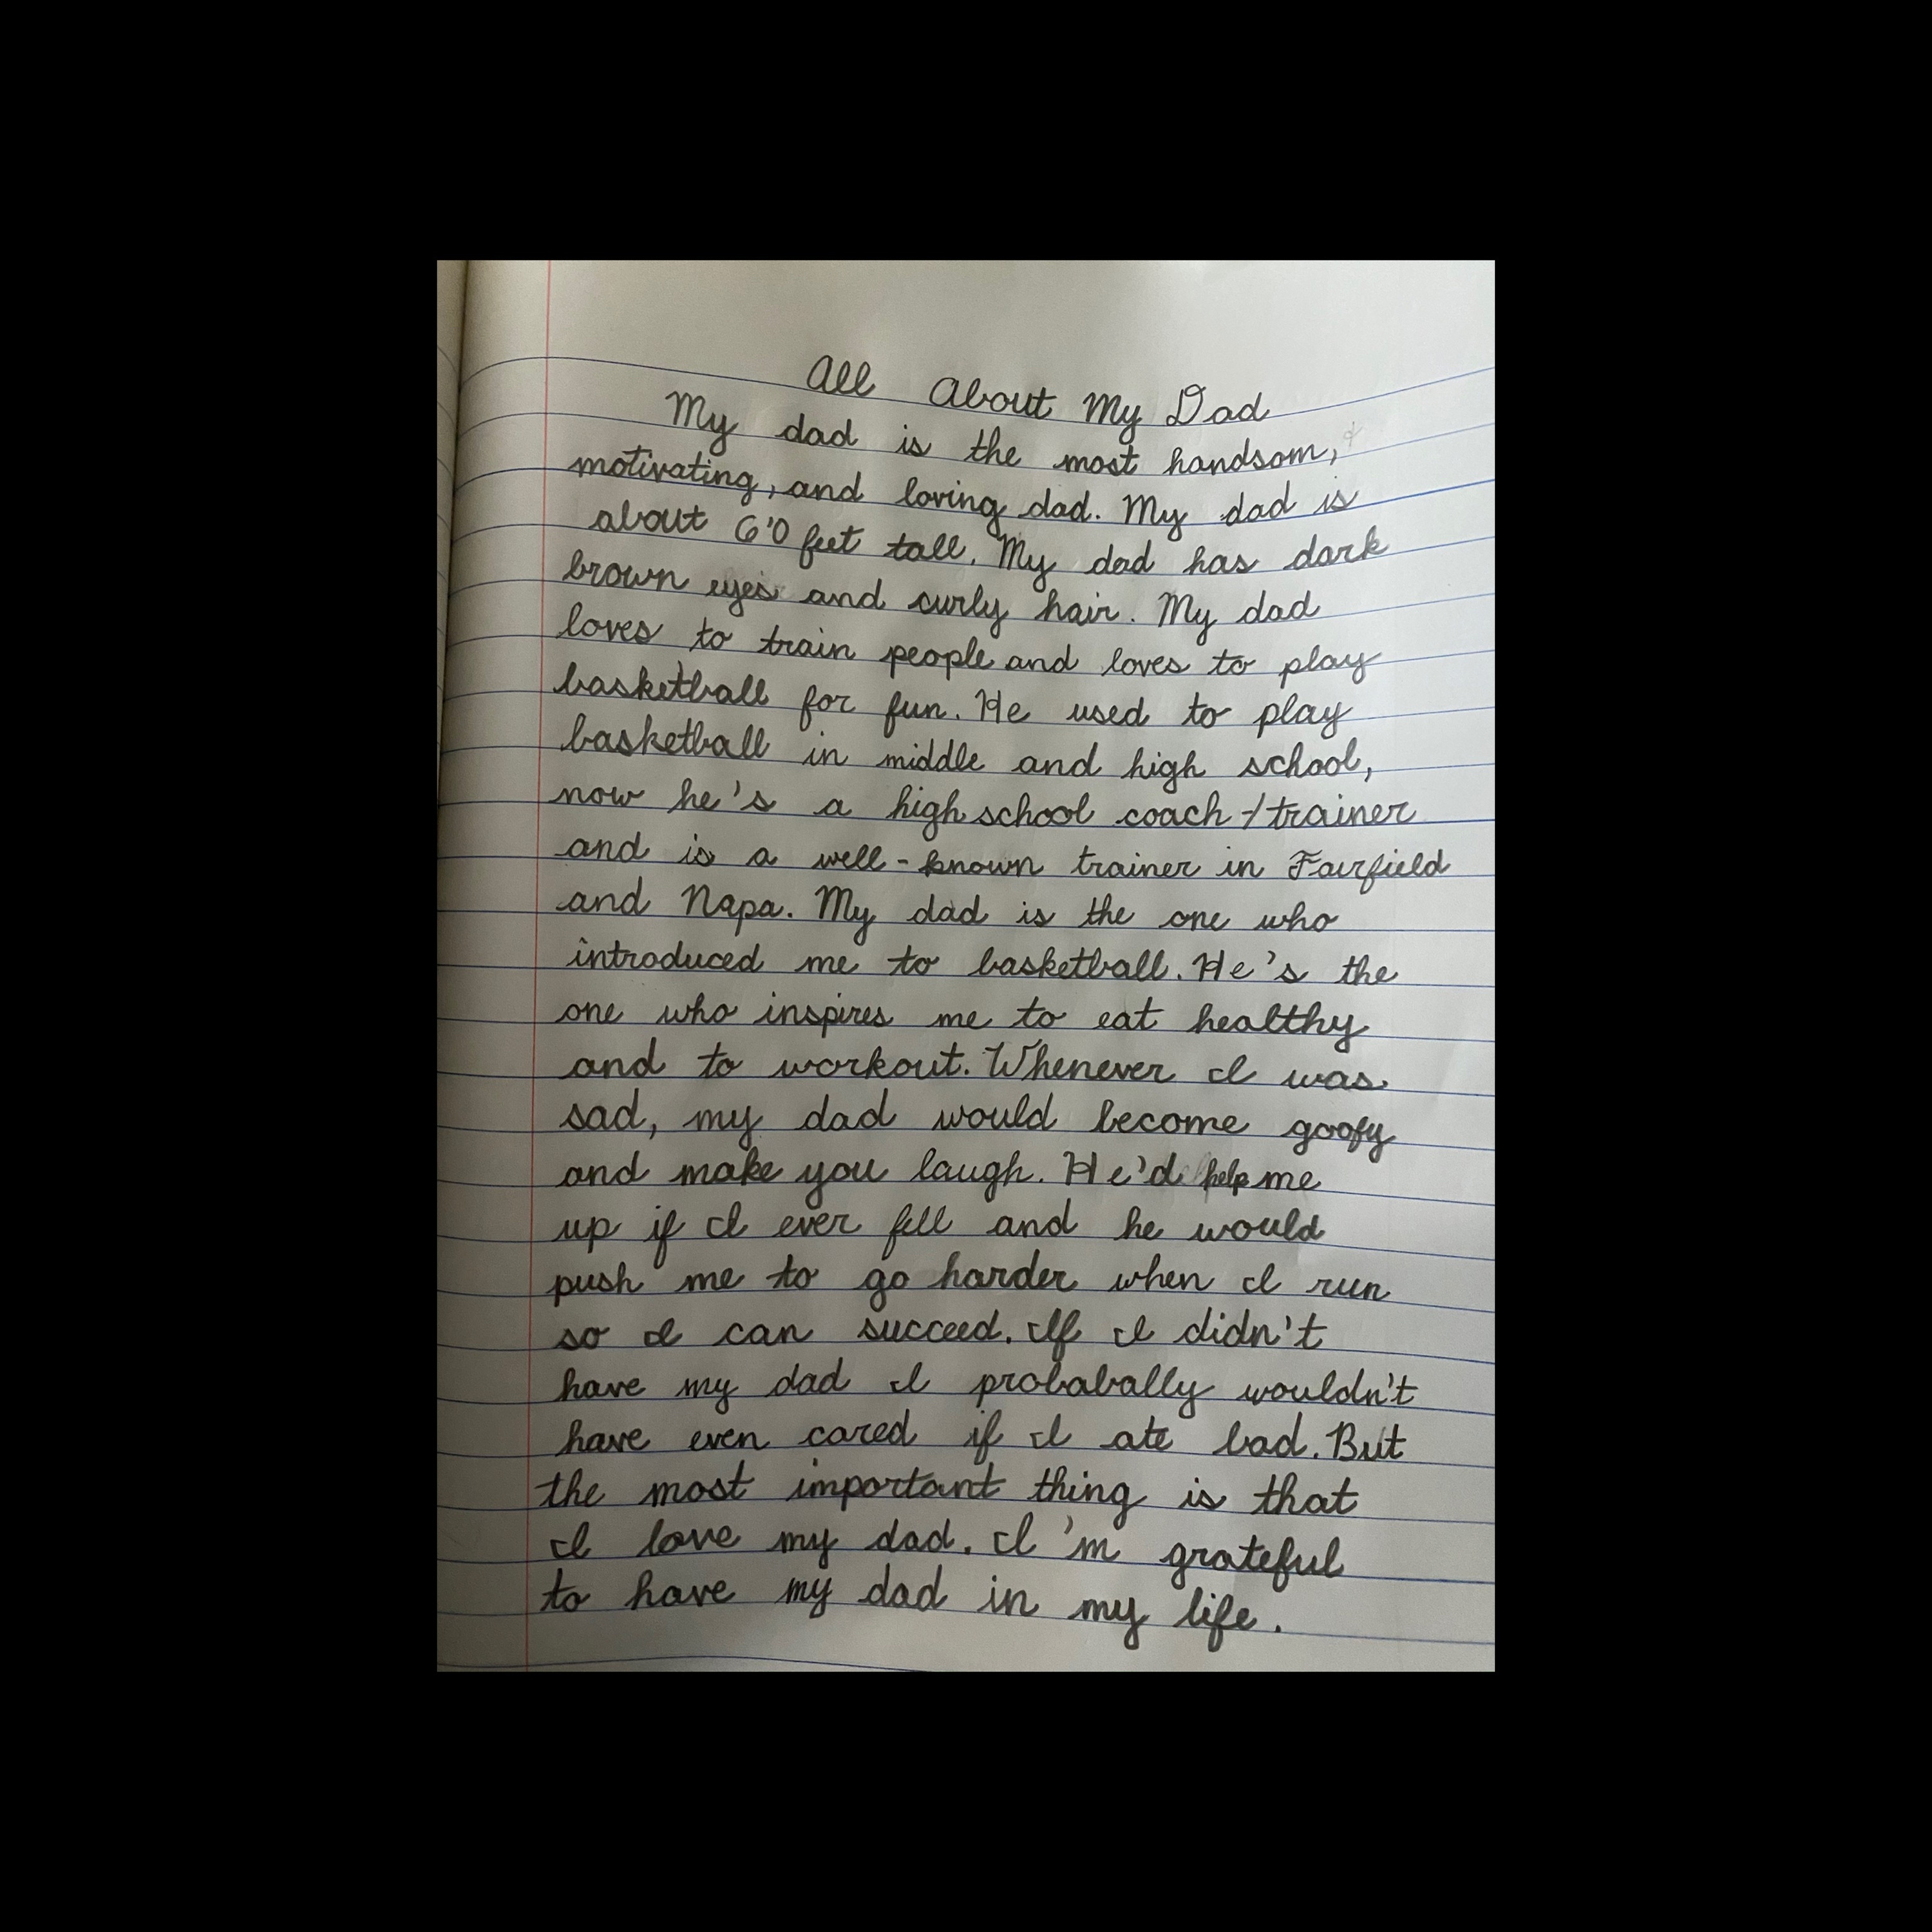 All About My Dad
My dad is the most handsom,
motivating, and loving dad. My dad is
about 6'0 feet tall. My dad has dark
brown eyes and curly hair. My dad
loves to train people and loves to play
basketball for fun. He used to play
basketball in middle and high school,
now he's a high school coach/trainer
and is a well-known trainer in Fairfield
and Napa. My dad is the one who
introduced me to basketball. He's the
one who inspires me to eat healthy
and to workout. Whenever I was
sad, my dad would become goofy
and make you laugh. He'd help me
up if I ever fell and he would
push me to go harder when I run
so I can succeed. If I didn't
have my dad I probabally wouldn't
have even cared if I ate bad. But
the most important thing is that
I love my dad. I'm grateful
to have my dad in my life.